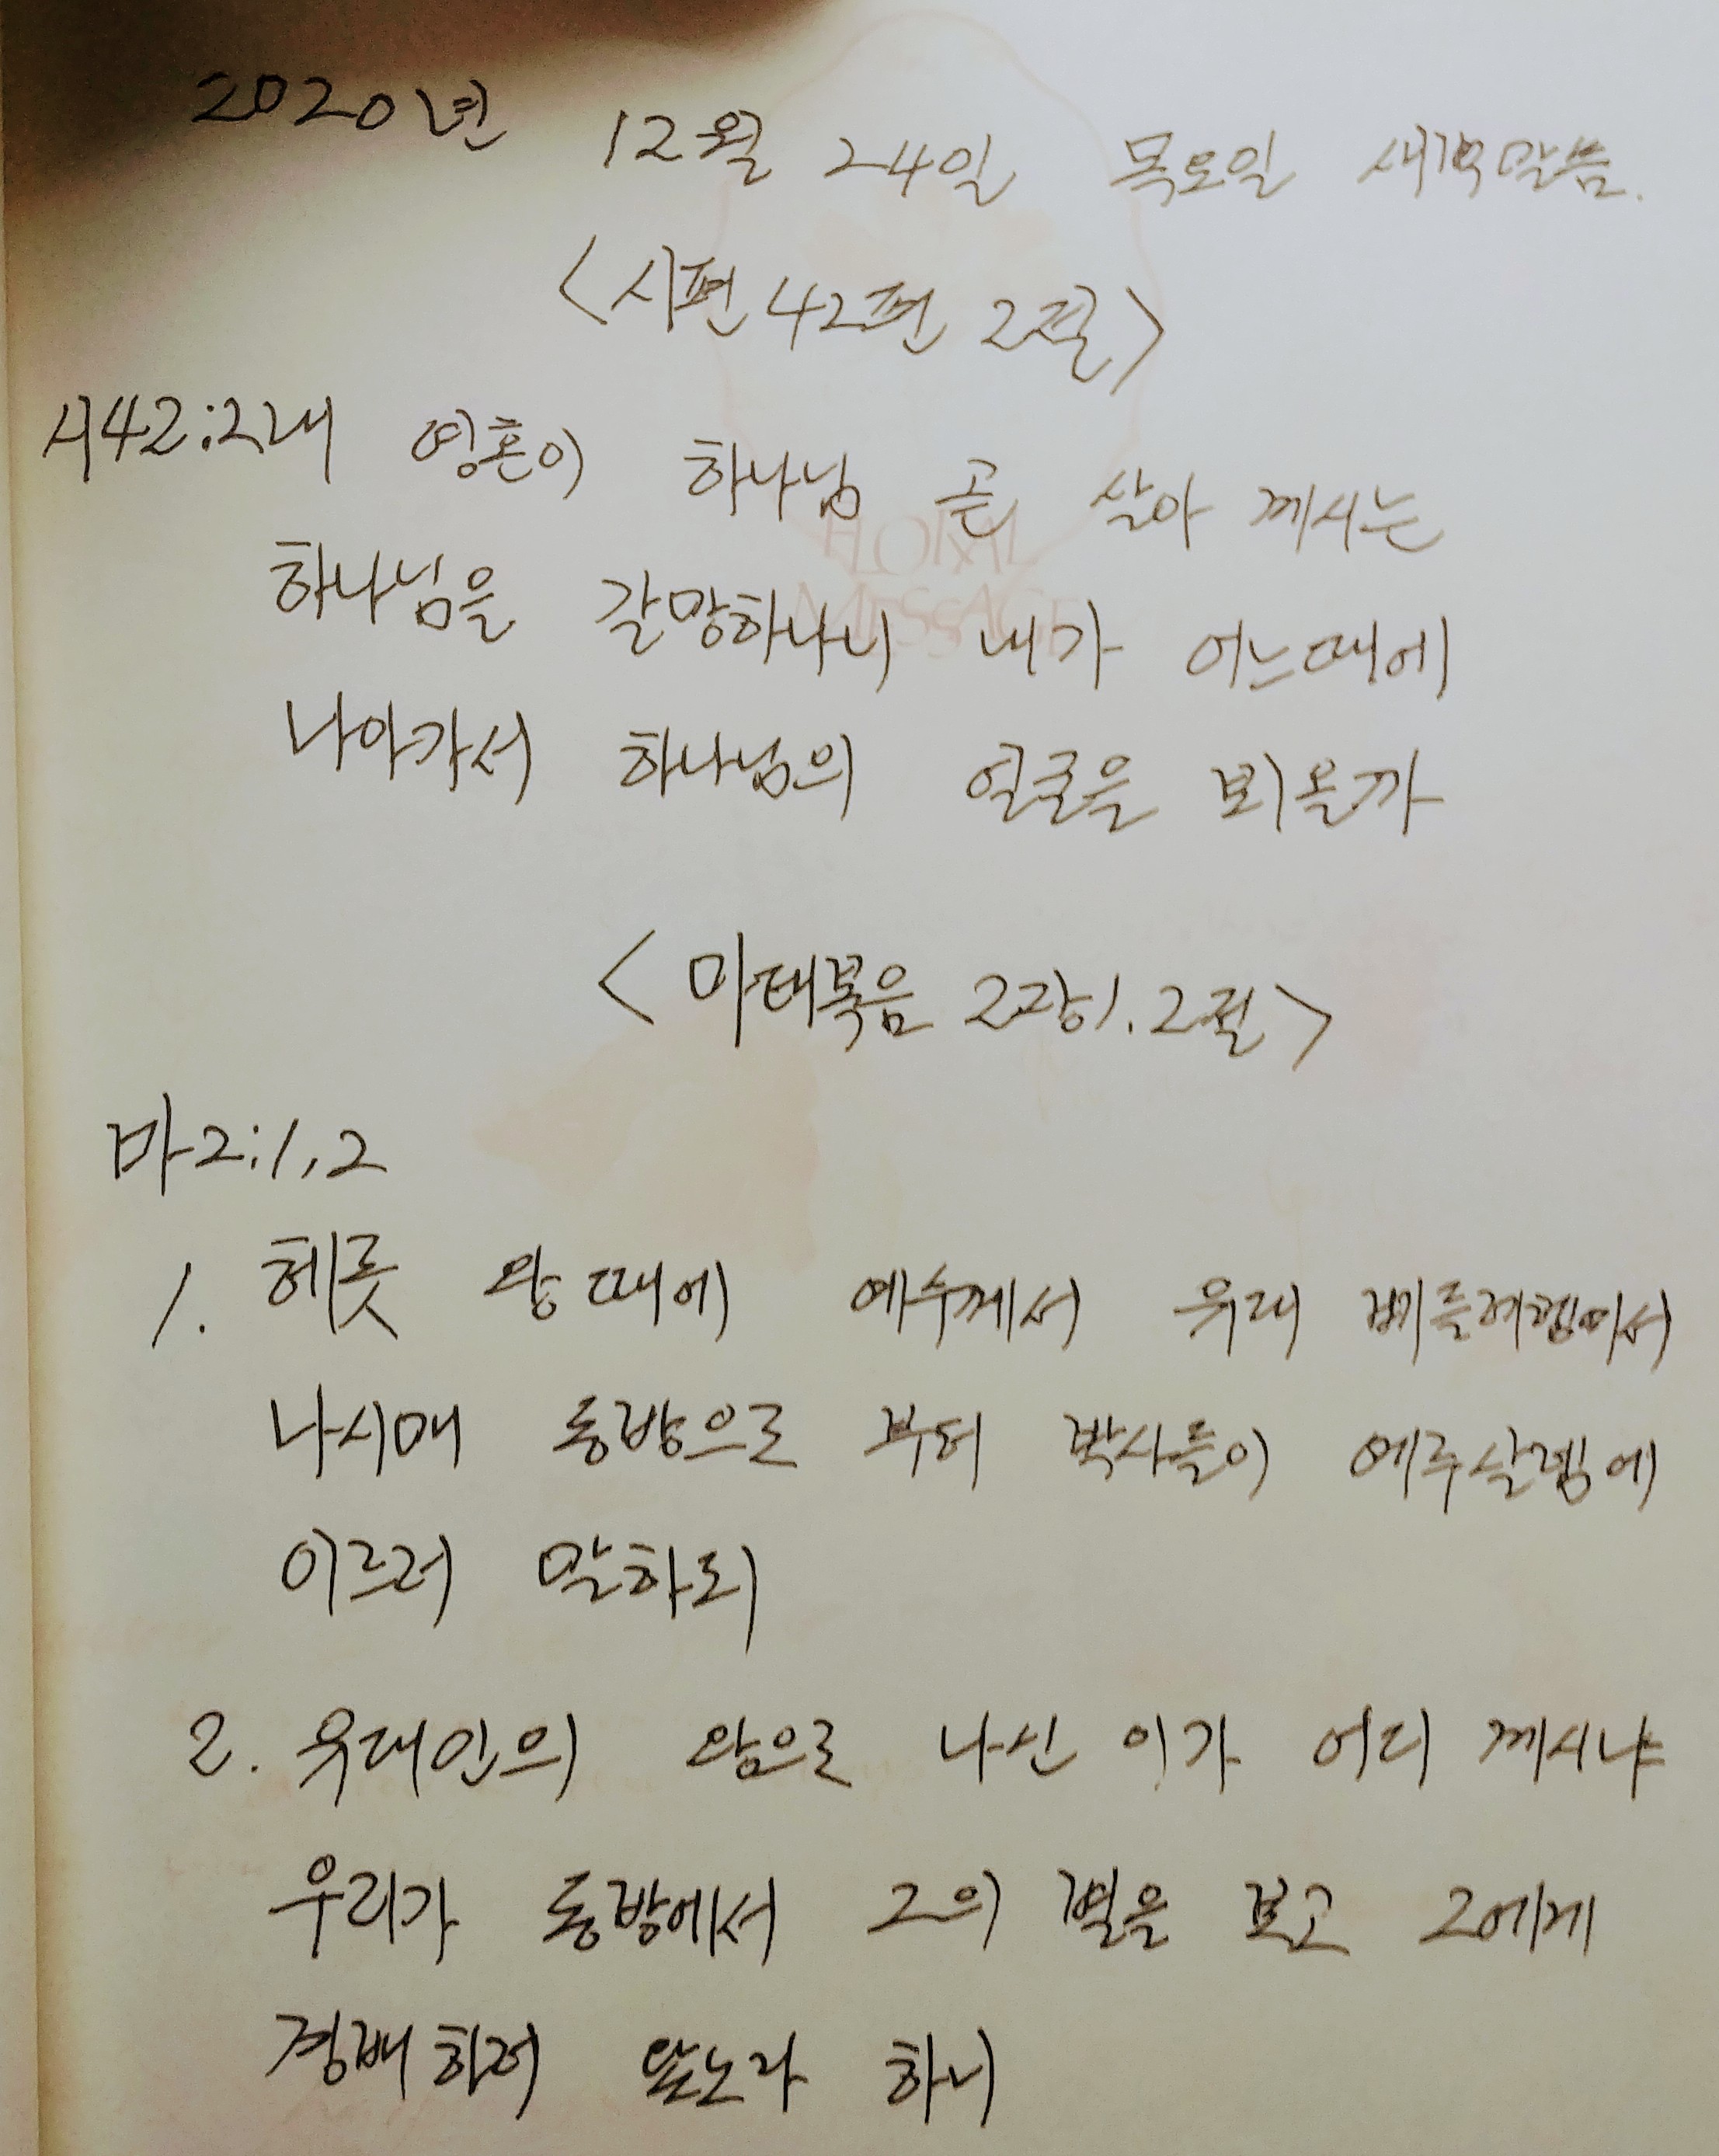 2020년 12월 24일 목요일 새벽말씀.
<시편 42편 2절>
시42:2내 영혼이 하나님 곧 살아 께시는
하나님을 갈망하나니 내가 어느때에
나아가서 하나님의 얼굴을 뵈올까
<마태복음 2장1.2절>
마2:1,2
1. 헤롯 왕 때에 예수께서 유대 베들레헴에서
나시매 동방으로 부터 박사들이 예루살렘에
이르러 말하되
2. 유대인의 왕으로 나신 이가 어디 께시냐
우리가 동방에서 그의 별을 보고 그에게
경배하러 왔노라 하니
FLORAL
MESSAGE